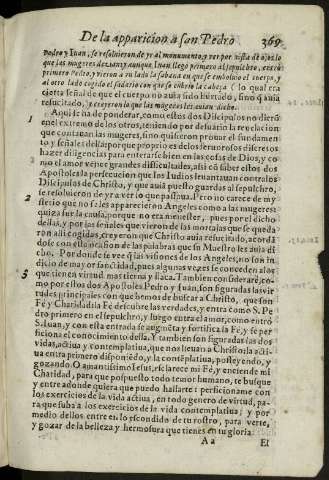 De la apparicion à san Pedro 369
Pedro y Iuan, se resoluieron de yr al monumento, y ver por vista de ojos lo
que las mugeres dezian; y aunque Iuan llegò primero al sepulchro, entrò
primero Pedro, y vieron a su lado la sabana en que se emboluio el cuerpo, y
al otro lado cogido el sudario con que se cubrio la cabeça (lo qual era
cierta señal de que el cuerpo no auia sido hurtado, sino q̃ auia
resucitado) y creyeron lo que las mugeres les auian dicho.
1 Aqui se ha de ponderar, como estos dos Discipulos no dierõ
en el extremo de los otros, teniendo por desuario la reuelacion
que contauan las mugeres, sino quisieron prouar el fundamen
to, y señales della: porque proprio es de los feruorosos discretos
hazer diligencias para enterarse bien en las cosas de Dios, y co
mo el amor vence grandes difficultades, assi cõ saber estos dos
Apostoles la persecucion que los Iudios leuantauan contra los
Discipulos de Christo, y que auia puesto guardas al sepulchro,
se resoluieron de yr a ver lo que passaua. Pero no carece de my
2 sterio que no se les aparecieron Angeles como a las mugeres:
quiza fue la causa, porque no era menester, pues por el dicho
dellas, y por las señales que vieron de las mortajas que se queda
ron alli cogidas, creyeron que Christo auia resucitado, acordã
dose con esta ocasion de las palabras que su Maestro les auia di
cho. Por donde se vee q̃ las visiones de los Angeles, no son in
dicio de mayor sanctidad, pues algunas vezes se conceden a los
5 que tienen virtud mas tierna y flaca. Tambien considerarè, co-
mo por estos dos Apostoles Pedro y Iuan, son figuradas las vir
tudes principales con que hemos de buscar a Christo, que son
Fè y Charidad: la Fè descubre las verdades, y entra como S. Pe
dro primero en el sepulchro, y luego entra el amor, como entrò
S. Iuan, y con esta entrada se augmẽta y fortifica la Fè, y se per
ficiona el conocimiento della. Y tambien son figuradas las dos
vidas, actiua y contemplatiua, que nos lleuan a Christo: la acti-
ua entra primero disponiẽdo, y la contẽplatiua, posseyendo, y
gozando. O amantissimo Iesus, esclarece mi Fè, y enciende mi
Charidad, para que pospuesto todo temor humano, te busque
y entre adonde quiera que puedo hallarte: perficioname con
los exercicios de la vida actiua, en todo genero de virtud, pa-
ra que suba a los exercicios de la vida contemplatiua; y por
medio dellos entre en lo escondido de tu rostro, para verte,
y gozar de la belleza y hermosura que tienes en tu gloria.
A a El